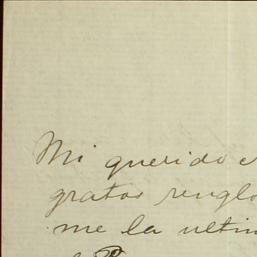 Mi querido
gratos renglo
me la ultim